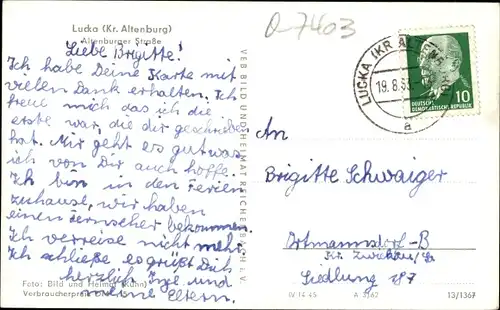 Lucka (Kr. Altenburg)
Altenburger Straße
Liebe Brigitte!
Ich habe Deine Karte mit
vielen Dank erhalten. Ich
freue mich das ich die
erste war, die dir geschrieben
hat. Mir geht es gut was
ich von Dir auch hoffe.
Ich bin in den Ferien
zuhause, wir haben
einen Fernseher bekommen.
Ich verreise nicht mehr.
Ich schließe es grüßt Dich
herzlich Inge und
meine Eltern.
Foto: Bild und Heimat (Kühn)
Verbraucherpreis
VEB BILD UND HEIMAT REICHENBACH i. V.
D-7403
LUCKA (KR ALTENB
19.8.63
a
DEUTSCHE
DEMOKRATISCHE REPUBLIK
10
An
Brigitte Schwaiger
Ortmannsdorf-B
Kr. Zwickau/Sa
Siedlung 187
IV 14 45
A 3162
13/1367